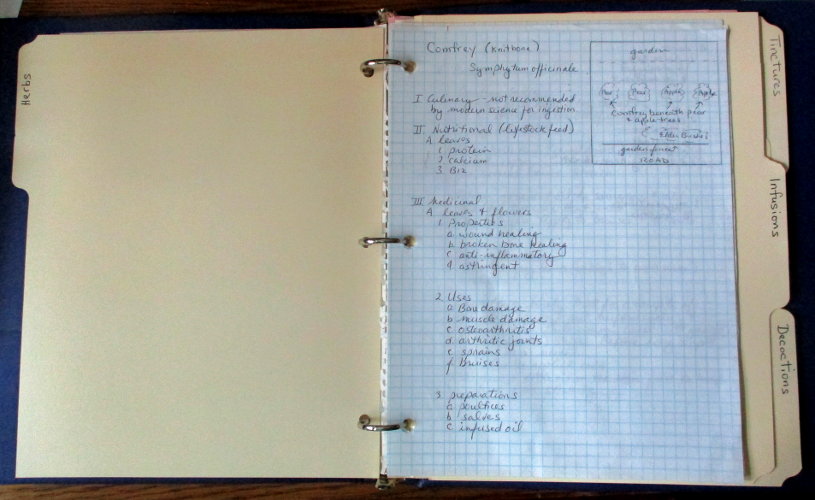 Herbs
Comfrey (Knitbone)
Symphytum officinale
I Culinary - not recommended
by modern science for ingestion
II Nutritional (livestock feed)
A leaves
1. protein
2. calcium
3. B12
III Medicinal
A leaves + flowers
1. Properties
a. wound healing
b. broken bone healing
c. anti-inflammatory
d. astringent
2. Uses
a. Bone damage
b. muscle damage
c. osteoarthritis
d. arthritic joints
e. sprains
f. Bruises
3. preparations
a. poultices
b. salves
c. infused oil
garden
Pear Pear Apple Apple
Comfrey beneath pear
+ apple trees
garden fence
ROAD
Tinctures
Infusions
Decoctions